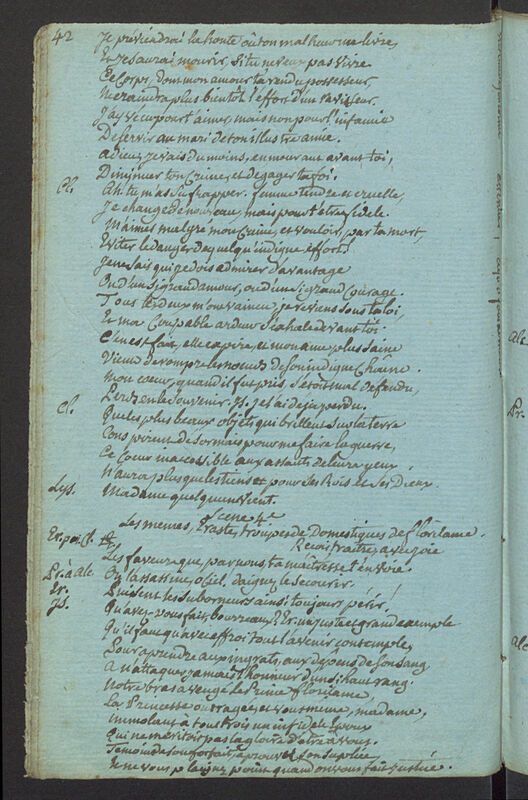 42 Je préviendrai la honte où ton malheur me livre,
Et je saurai mourir, si tu ne veux pas vivre
Ce corps, dont mon amour t'a rendu possesseur,
Ne craindra plus bientôt l'effort d'un ravisseur.
J'ay vecu pour t'aimer, mais non pour l'infamie
De servir au mari de ton illustre amie.
adieu, je vais du moins, en mourant avant toi,
Diminuer ton crime, et dégager ta foi.
Cl. Ah! tu m'as su frapper. femme tendre et cruelle,
Je change de nouveau, mais pour t'être fidele.
M'aimer malgré mon crime, et vouloir, par ta mort,
Eviter le danger de quelqu'indigne effort!
Je ne sais qui je dois admirer d'avantage
Ou d'un si grand amour, ou d'un si grand courage.
Tous les deux m'ont vaincu, je reviens sous ta loi,
Et ma coupable ardeur s'exhale devant toi.
C'en est fait, elle expire, et mon ame plus saine
Vient de rompre les noeuds de son indigne chaîne.
mon coeur, quand il fut pris, s'étoit mal defendu,
Perds en le souvenir. Is. je l'ai deja perdu.
Cl. Que les plus beaux objets qui brillent sur la terre
Conspirent désormais pour me faire la guerre,
Ce coeur inaccessible aux assauts de leurs yeux,
N'aura plus que les tiens et pour ses Rois et ses Dieux.
Lys. Madame quelqu'un vient.
Scene 4e
Les memes, Eraste, troupe de Domestiques de florilame.
Er. poi. Cl. Recoi, traître, avec joie
Les faveurs que, par nous, ta maîtresse t'envoie.
Pr. à Alc. On l'assassine, o ciel, daignez le secourir.
Er. Puissent les suborneurs ainsi toujours périr!
Is. Qu'avez-vous fait, bourreaux? Er. un juste et grand exemple
Qu'il faut qu'avec effroi tout l'avenir contemple,
Pour aprendre aux ingrats, aux dépens de son sang,
A n'attaquer jamais l'honneur d'un si haut rang.
Notre bras a vengé le Prince florilame,
La Princesse outragée, et vous meme, madame,
immolant à tout trois un infidele époux
Qui ne méritoit pas la gloire d'être à vous.
Et ne vous plaignez point quand on vous fait justice.